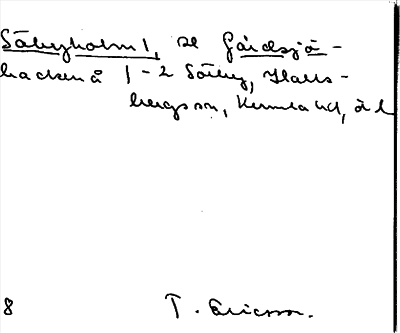 Säbyholm 1, se Gårdsjö-
backen å 1-2 Säby, Halls-
bergs sn, Kumla hd, ö l
8 T. Ericsson.